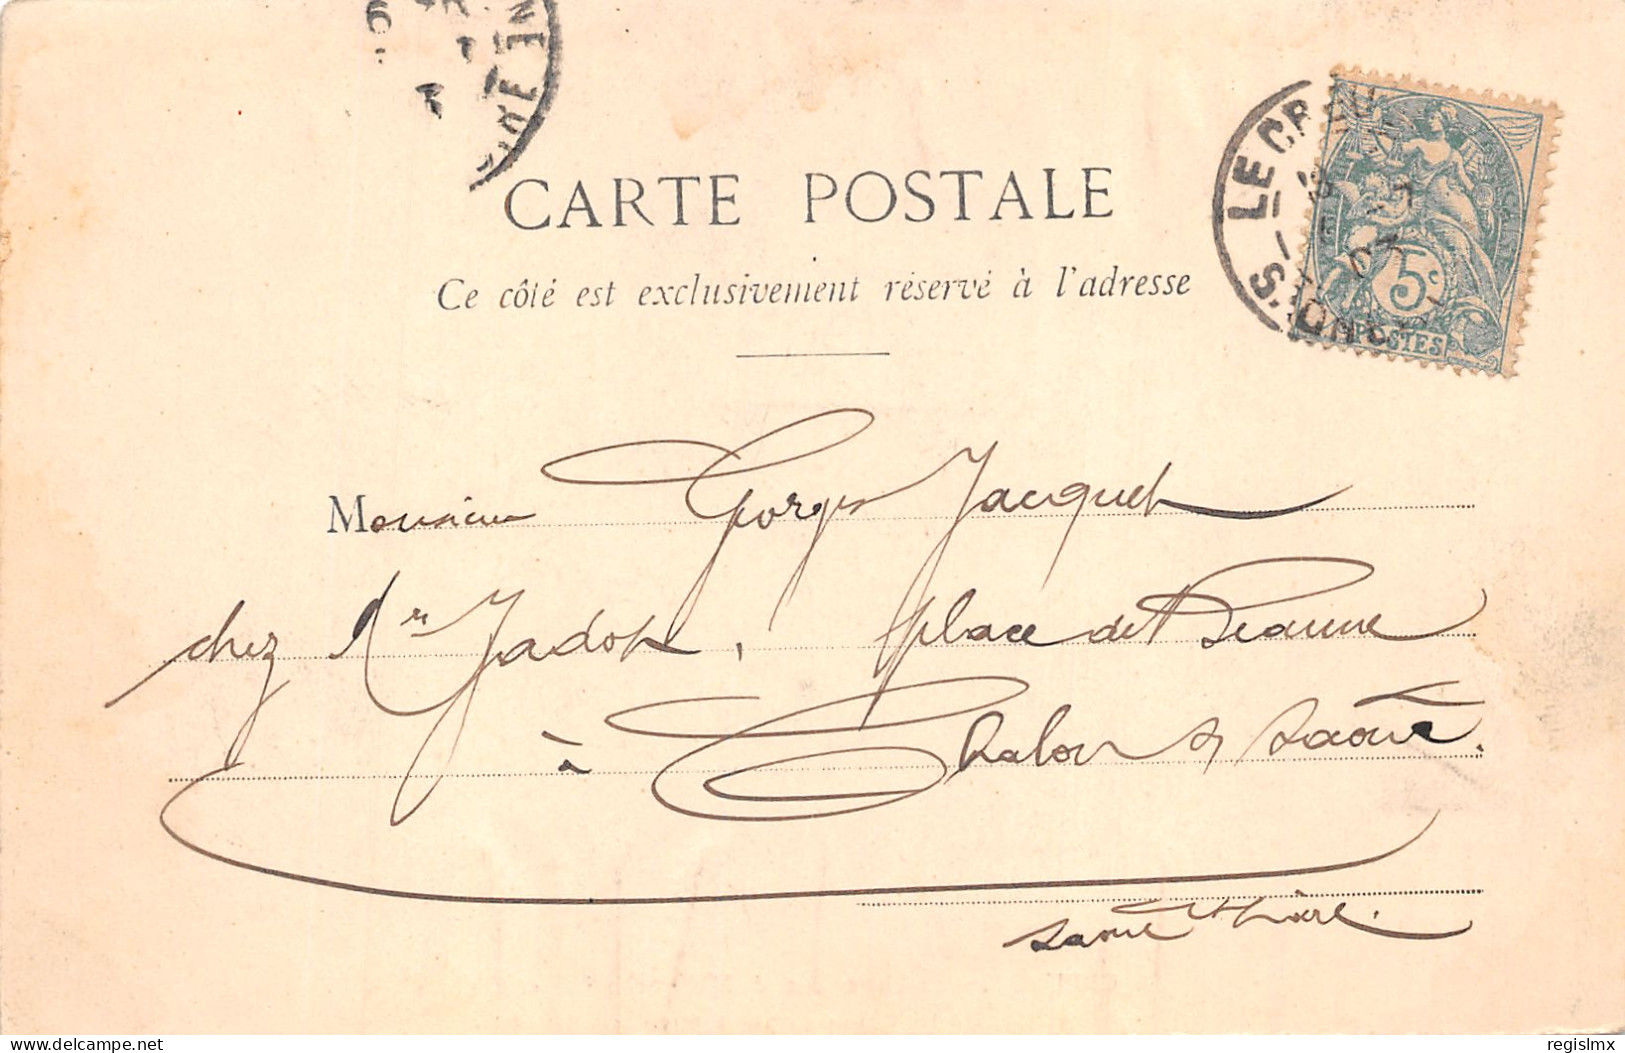 CARTE POSTALE
Ce côté est exclusivement réservé à l'adresse
LE CR
S.
5c
POSTES
Monsieur Georges Jacquet
chez Mr Jadot, place de Beaune
à Chalon s/ Saône.
Saône & Loire.
delcampe.net
regislmx